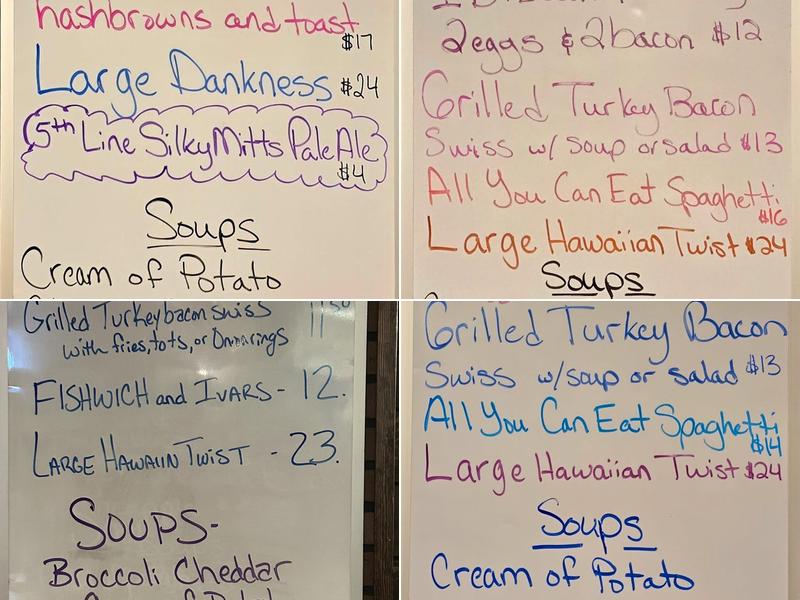 hashbrowns and toast
$17
Large Dankness $24
5th Line Silky Mitts Pale Ale
$4
Soups
Cream of Potato
2eggs & 2bacon $12
Grilled Turkey Bacon
Swiss w/ soup or salad $13
All You Can Eat Spaghetti
$16
Large Hawaiian Twist $24
Soups
Grilled Turkey bacon swiss 11.50
with fries, tots, or Onnarings
FISHWICH and IVARS - 12.
LARGE HAWAIIN TWIST - 23.
SOUPS-
Broccoli Cheddar
Grilled Turkey Bacon
Swiss w/soup or salad $13
All You Can Eat Spaghetti
$14
Large Hawaiian Twist $24
Soups
Cream of Potato